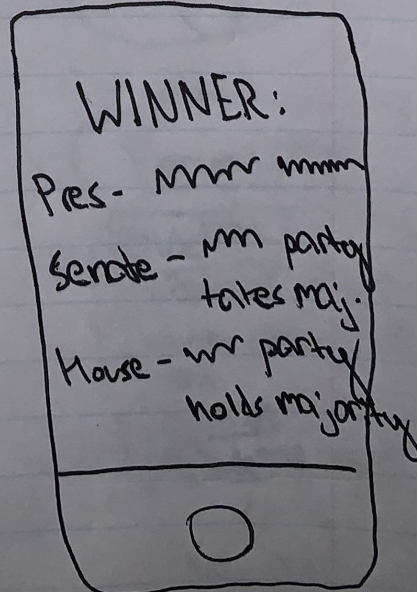 WINNER:
Pres-
Senate - party
takes maj.
House - party
holds majority